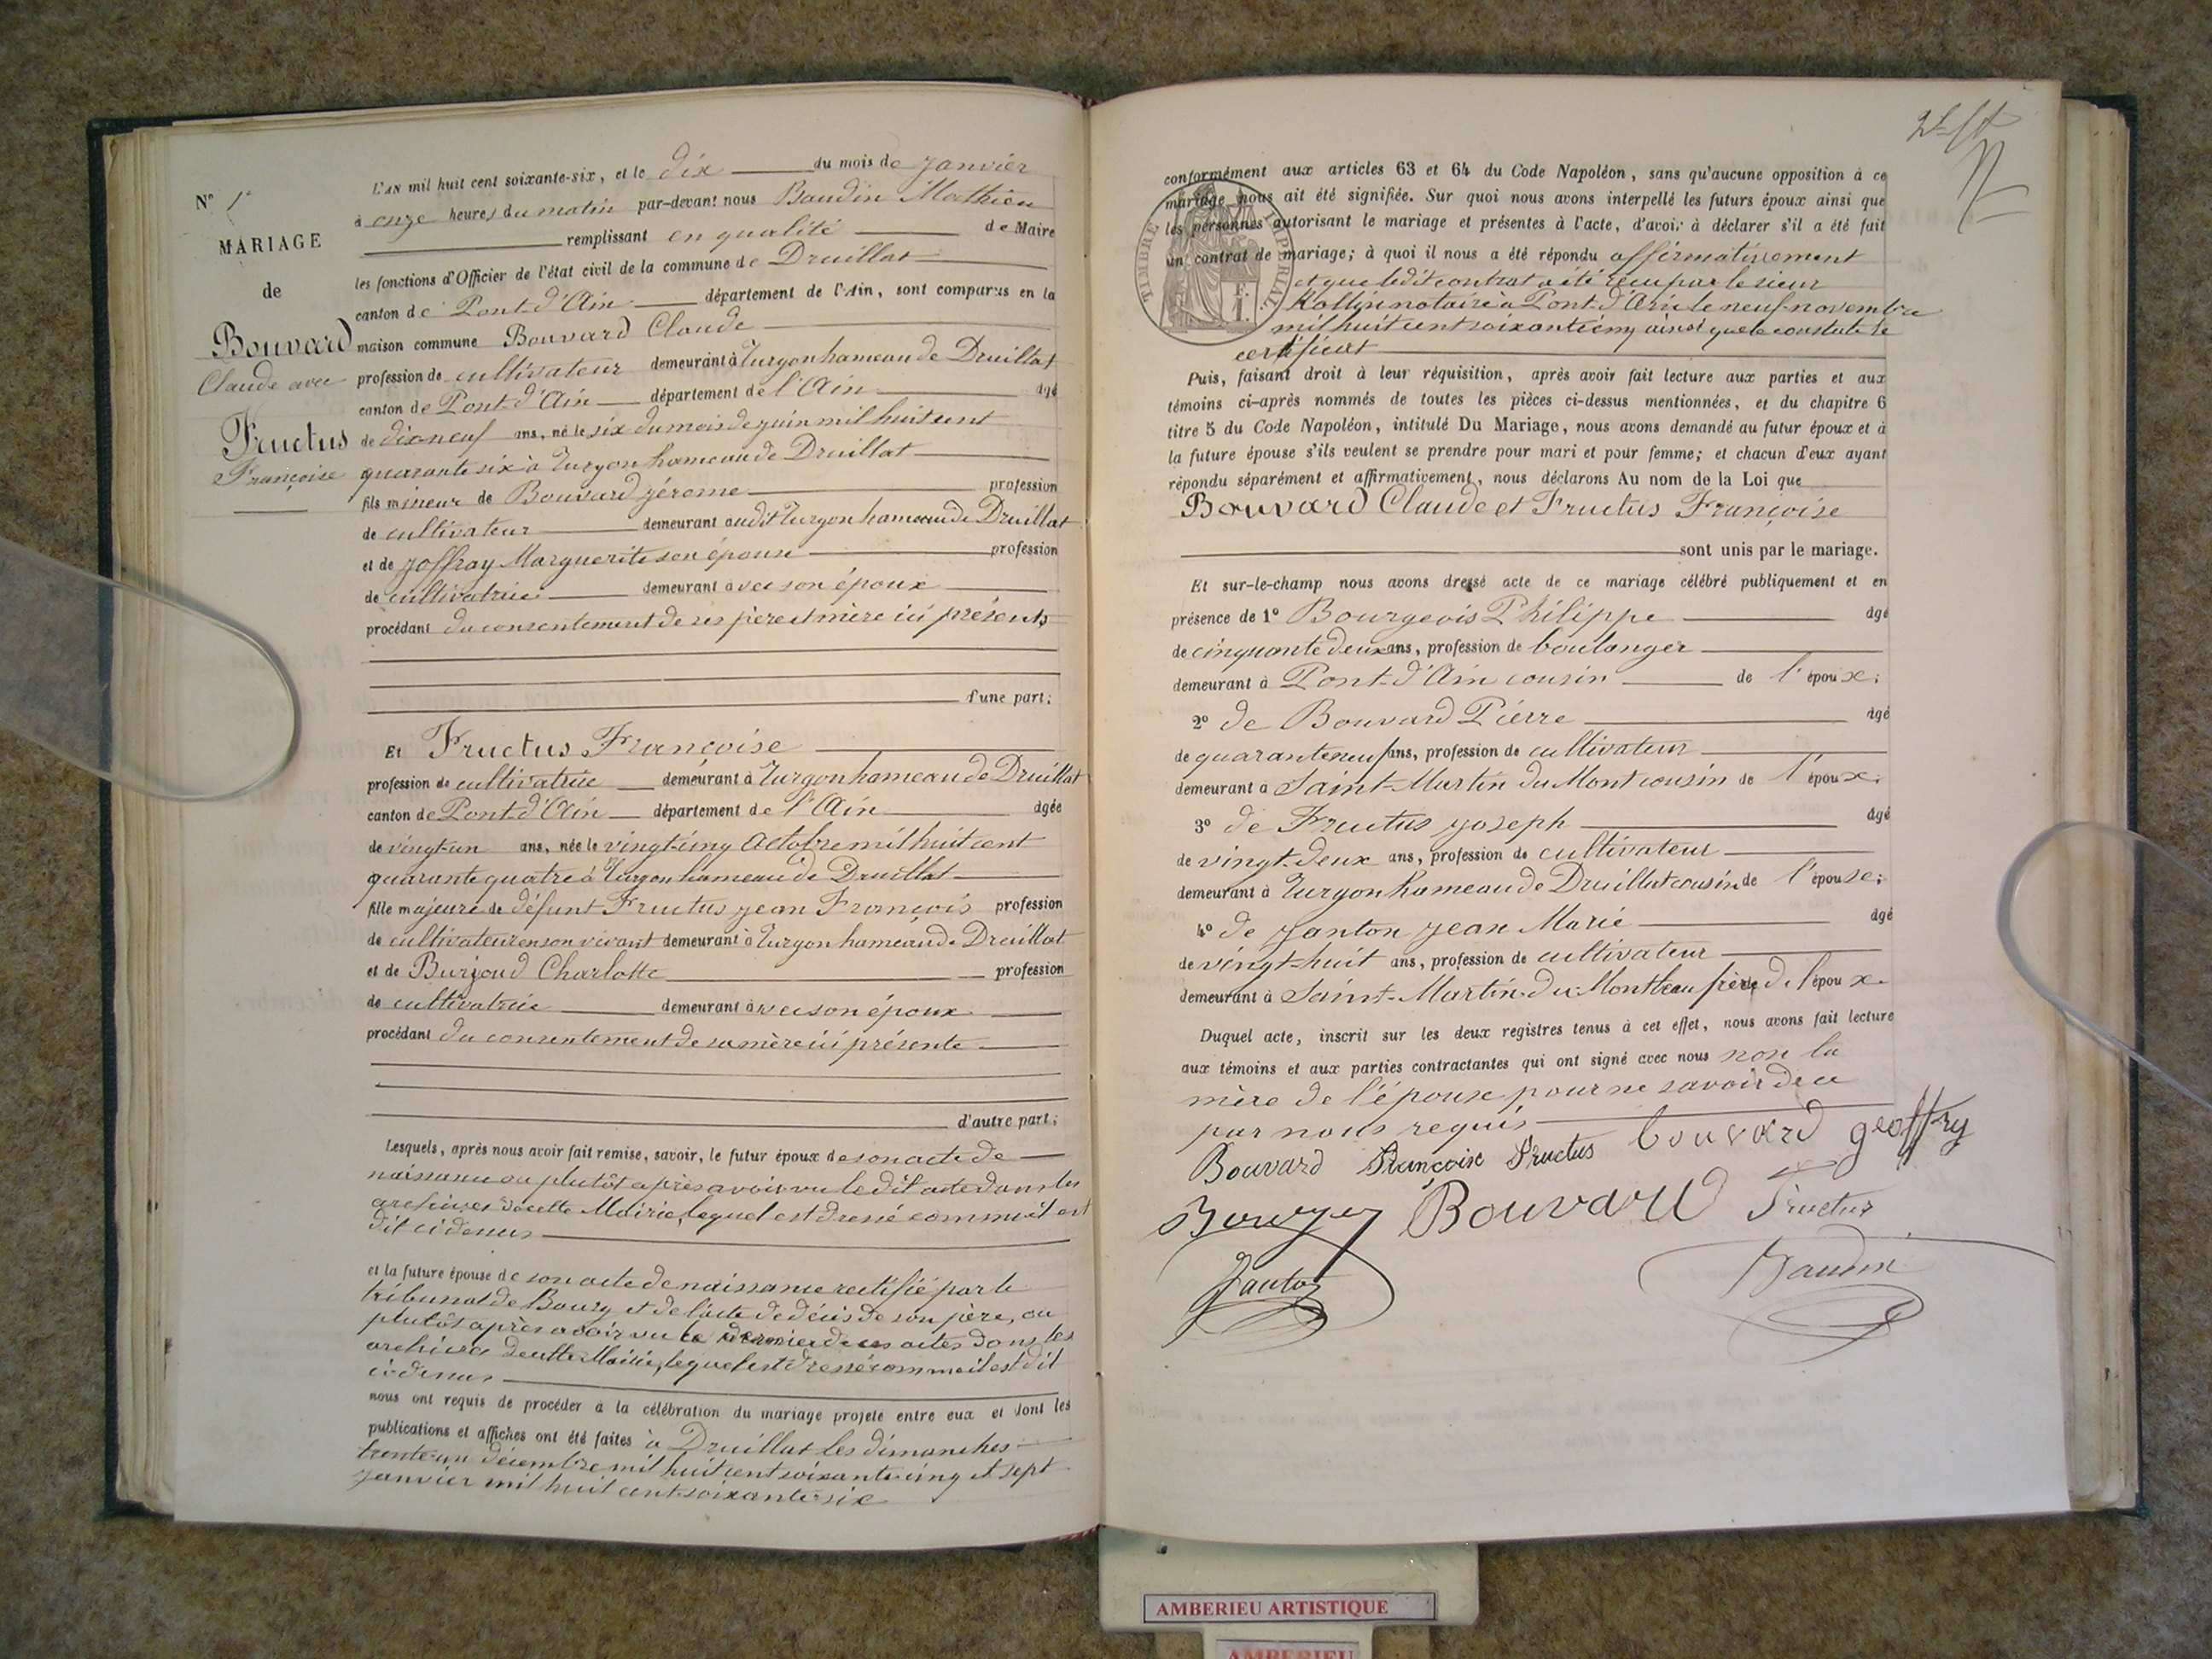 N° 1er
MARIAGE
de
Bouvard
Claude avec
Fructus
Françoise
L'AN mil huit cent soixante-six, et le dix du mois de Janvier
à onze heures du matin par-devant nous Baudin Mathieu
remplissant en qualité de Maire
les fonctions d'Officier de l'état civil de la commune de Druillat
canton de Pont-d'Ain département de l'Ain, sont comparus en la
maison commune Bouvard Claude
profession de cultivateur demeurant à Turgon hameau de Druillat
canton de Pont-d'Ain département de l'Ain âgé
de dix neuf ans, né le six du mois de juin mil huit cent
quarante six à Turgon hameau de Druillat
fils mineur de Bouvard Jérome profession
de cultivateur demeurant audit Turgon hameau de Druillat
et de Joffray Marguerite son épouse profession
de cultivatrice demeurant avec son époux
procédant du consentement de ses père et mère ici présents
d'une part;
Et Fructus Françoise
profession de cultivatrice demeurant à Turgon hameau de Druillat
canton de Pont-d'Ain département de l'Ain âgée
de vingt-un ans, née le vingt-cinq Octobre mil huit cent
quarante quatre à Turgon hameau de Druillat
fille majeure de défunt Fructus Jean François profession
de cultivateur en son vivant demeurant à Turgon hameau de Druillat
et de Burjoud Charlotte profession
de cultivatrice demeurant avec son époux
procédant du consentement de sa mère ici présente
d'autre part;
Lesquels, après nous avoir fait remise, savoir, le futur époux de son acte de
naissance ou plutôt après avoir vu ledit acte dans les
archives de cette Mairie, lequel est dressé comme il est
dit ci dessus
et la future épouse de son acte de naissance rectifié par le
tribunal de Bourg et de l'acte de décès de son père, ou
plutôt après avoir vu le dernier de ces actes dans les
archives de cette Mairie, lequel est dressé comme il est dit
ci-dessus
nous ont requis de procéder à la célébration du mariage projeté entre eux et dont les
publications et affiches ont été faites à Druillat les dimanches
trente-un décembre mil huit cent soixante cinq et sept
Janvier mil huit cent soixante six
conformément aux articles 63 et 64 du Code Napoléon, sans qu'aucune opposition à ce
mariage nous ait été signifiée. Sur quoi nous avons interpellé les futurs époux ainsi que
les personnes autorisant le mariage et présentes à l'acte, d'avoir à déclarer s'il a été fait
un contrat de mariage; à quoi il nous a été répondu affirmativement
et que ledit contrat a été reçu par le sieur
notaire à Pont-d'Ain le neuf novembre
mil huit cent soixante cinq ainsi que le constate le
certificat
TIMBRE IMPERIAL
Puis, faisant droit à leur réquisition, après avoir fait lecture aux parties et aux
témoins ci-après nommés de toutes les pièces ci-dessus mentionnées, et du chapitre 6
titre 5 du Code Napoléon, intitulé Du Mariage, nous avons demandé au futur époux et à
la future épouse s'ils veulent se prendre pour mari et pour femme; et chacun d'eux ayant
répondu séparément et affirmativement, nous déclarons Au nom de la Loi que
Bouvard Claude et Fructus Françoise
sont unis par le mariage.
Et sur-le-champ nous avons dressé acte de ce mariage célébré publiquement et en
présence de 1° Bourgeois Philippe âgé
de cinquante deux ans, profession de boulanger
demeurant à Pont-d'Ain cousin de l'époux;
2° de Bouvard Pierre âgé
de quarante neuf ans, profession de cultivateur
demeurant à Saint-Martin du Mont cousin de l'époux;
3° de Fructus Joseph âgé
de vingt-deux ans, profession de cultivateur
demeurant à Turgon hameau de Druillat cousin de l'épouse;
4° de Janton Jean Marie âgé
de vingt-huit ans, profession de cultivateur
demeurant à Saint-Martin-du-Mont beau frère de l'époux.
Duquel acte, inscrit sur les deux registres tenus à cet effet, nous avons fait lecture
aux témoins et aux parties contractantes qui ont signé avec nous non la
mère de l'épouse pour ne savoir de ce
par nous requis
Bouvard Françoise Fructus bouvard geoffry
Bourgeois Bouvard Fructus
Janton Baudin
AMBERIEU ARTISTIQUE
AMBERIEU